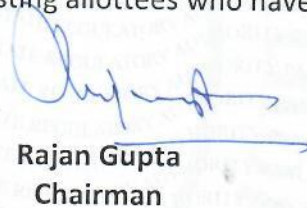 sting allottees who have
Rajan Gupta
Chairman